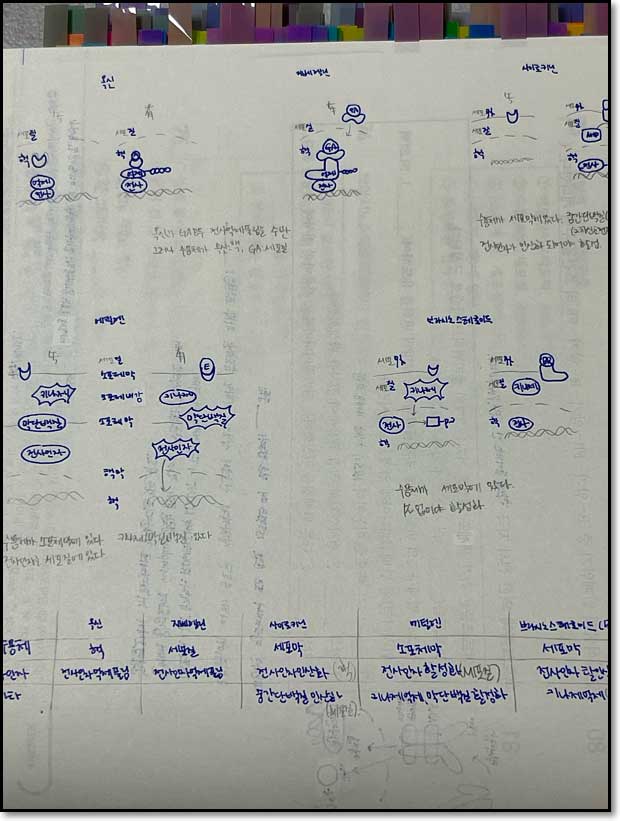 옥신
지베렐린
사이토키닌
무
유
세포질
핵
억제
전사
세포질
핵
억제
전사
유
GA
세포질
핵
GA
억제
전사
무
세포외
세포질
핵
세포외
세포질
핵
전사
옥신과 GA 모두 전사억제
수용체가 옥신:핵, GA:세포질
수용체가 세포막에 있다. 중간단백질
전사인자가 인산화 되어야 활성
에틸렌
브라시노스테로이드
무
세포질
유
소포체막
E
키나아제
소포체내강
키나아제
막단백질
소포체막
막단백질
전사인자
전사인자
핵막
핵
세포외
세포질
키나아제
전사
핵
세포외
세포질
키나아제
전사
핵
수용체가 소포체막에 있다
전사인자는 세포질에 있다
수용체가 세포막에 있다
옥신
지베렐린
사이토키닌
에틸렌
브라시노스테로이드
수용체
핵
세포질
세포막
소포체막
세포막
전사인자억제풀림
전사인자억제풀림
전사인자인산화 (핵)
전사인자활성화 (세포질)
중간단백질 인산화
키나제억제, 막단백질 활성화
(세포질)
키나제억제